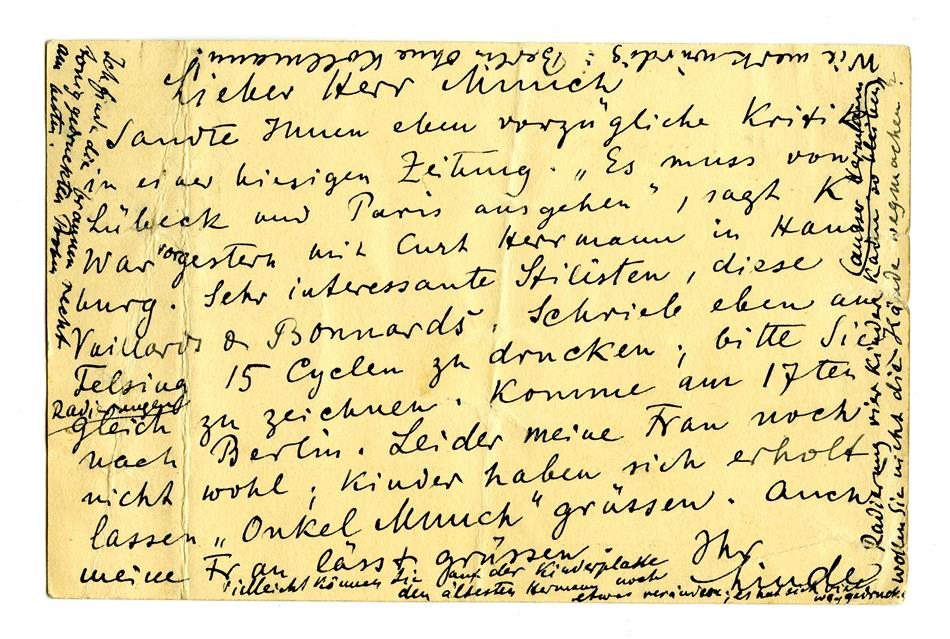 Wie merkwürdig: Berlin ohne Kollmann!
Lieber Herr Munch
Sandte Ihnen eben vorzügliche Kritik
in einer hiesigen Zeitung. „Es muss von
Lübeck und Paris ausgehen“, sagt K
War vorgestern mit Curt Herrmann in Ham
burg. Sehr interessante Stilisten, diese
Vuillards & Bonnards. Schrieb eben an
Felsing 15 Cyclen zu drucken; bitte Sie
Radierungen
gleich zu zeichnen. Komme am 17ten
nach Berlin. Leider meine Frau noch
nicht wohl; Kinder haben sich erholt
lassen „Onkel Munch“ grüssen. Auch
meine Frau lässt grüssen. Ihr
Linde
Vielleicht können Sie auf der Kinderplatte
den ältesten Hermann noch
etwas verändern; es hat sich
Ich finde die braunen
in
gedruckten
recht
am besten.
Radierung vier Kinder
wollen Sie nicht die Hände wegmachen?